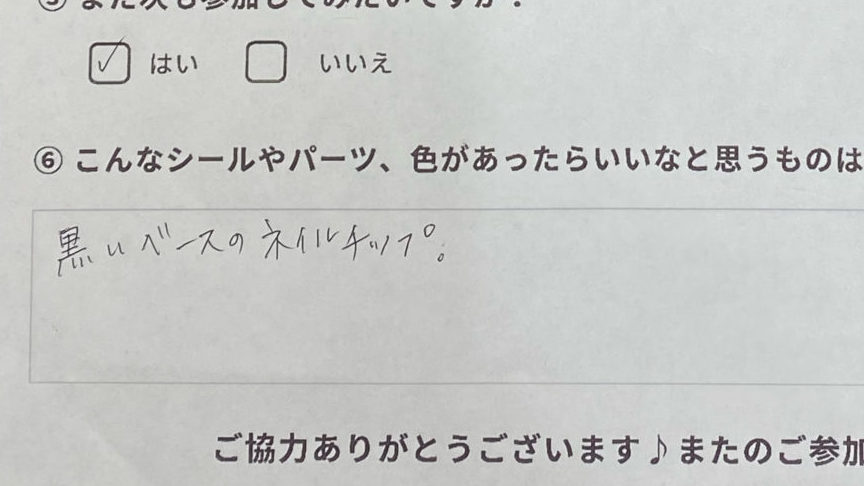 ⑤また次も参加してみたいですか？
✓ はい　いいえ
⑥ こんなシールやパーツ、色があったらいいなと思うものは
黒いベースのネイルチップ。
ご協力ありがとうございます♪またのご参加